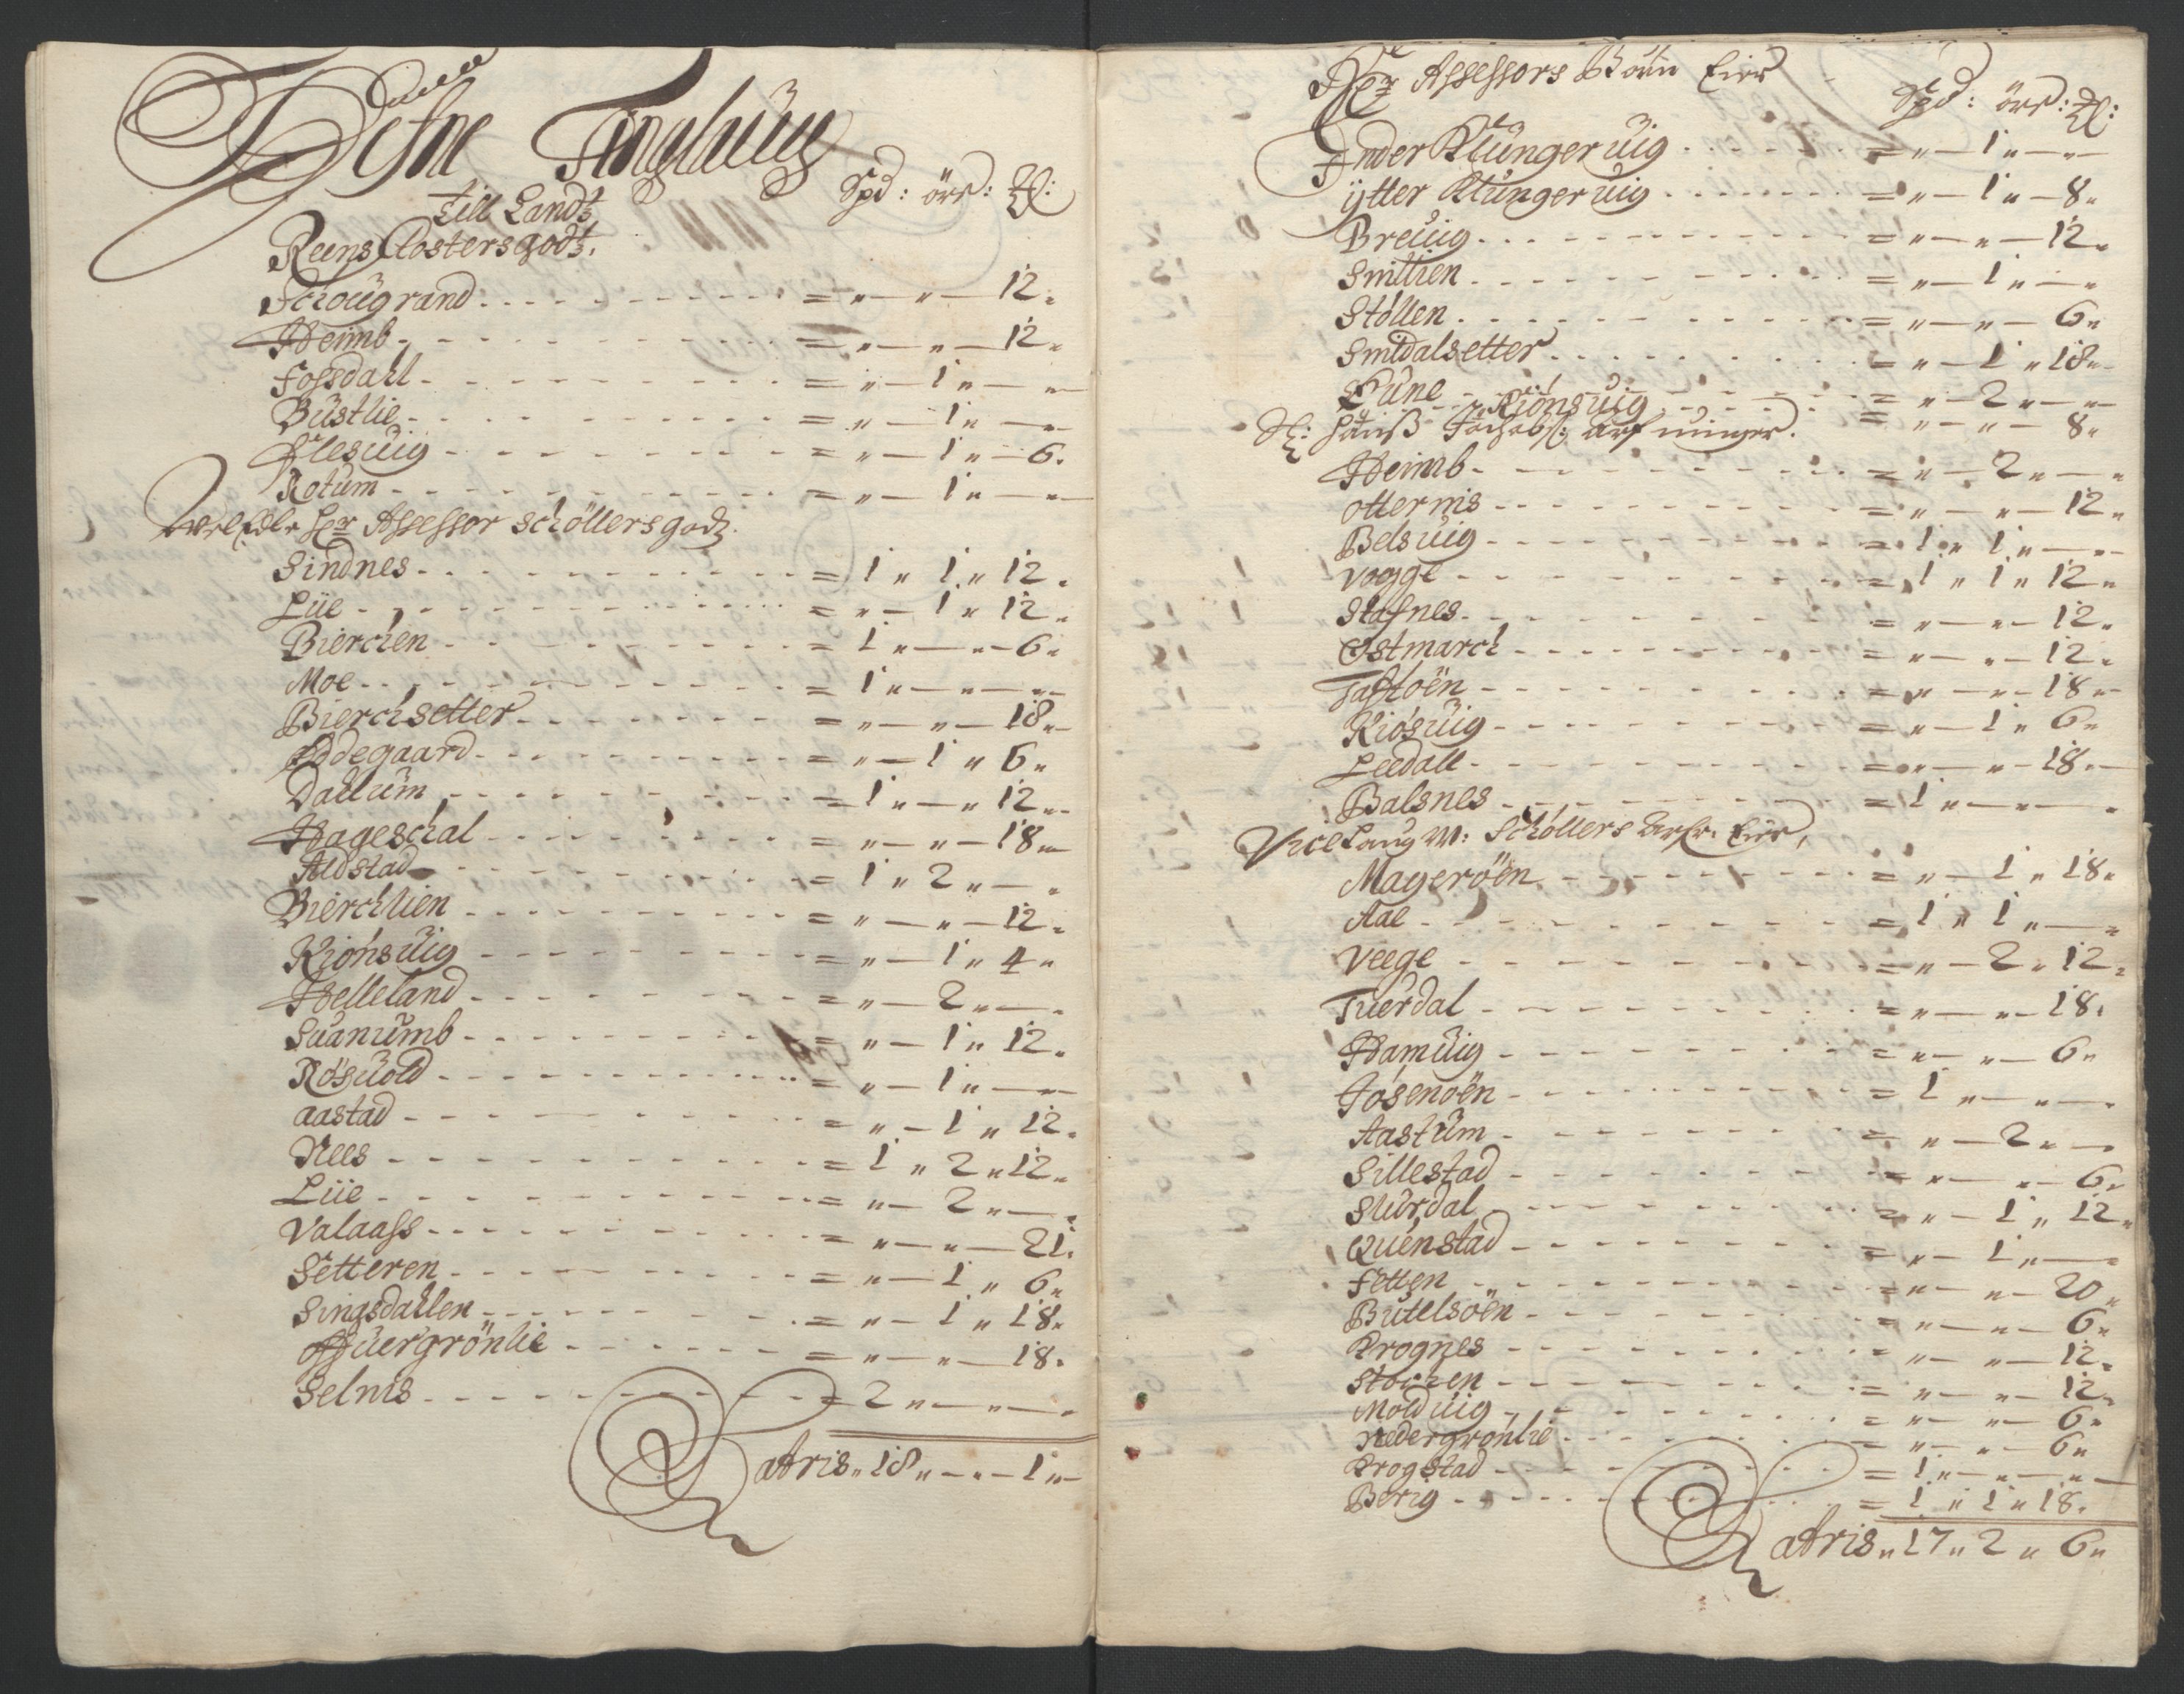 Hefne Tinglaug
till Landt
Spd: örs: ℔:
Reens Closters godtz.
Schougrand - - - = „ — „ — 12 „
Heimb - - - = „ — „ — 12 „
Fossdahl - - - = „ — 1 „ — „
Büstlie - - - = „ — 1 „ — „
Flesuig - - - = „ — 1 „ — 6 „
Rotum - - - = „ — 1 „ — „
Welædle Hr Assessor Schöllers godtz.
Sindnes - - - = 1 „ 1 „ 12 „
Liie - - - = „ — 1 „ 12 „
Bierchen - - - = 1 „ — „ — 6 „
Moe - - - = 1 „ — „ — „
Bierchsetter - - - = „ — „ — 18 „
Ødegaard - - - = „ — 1 „ 6 „
Dahlum - - - = 1 „ — „ 12 „
Hageschal - - - = „ — „ — 18 „
Aldstad - - - = 1 „ 2 „ — „
Bierchlien - - - = „ — „ — 12 „
Kiónsuig - - - = „ — 1 „ 4 „
Helleland - - - = „ — 2 „ — „
Suanumb - - - = „ — 1 „ 12 „
Rósuold - - - = „ — 1 „ — „
aastad - - - = „ — 1 „ 12 „
Nees - - - = 1 „ 2 „ 12 „
Liie - - - = „ — 2 „ — „
Valaass - - - = „ — „ — 21 „
Setteren - - - = „ — 1 „ 6 „
Singsdahlen - - - = „ — 1 „ 18 „
Offuergrönlie - - - = „ — „ — 18 „
Selnis - - - = 2 „ — „ — „
Latris „ 18 „ — „ — 1 „
Hr Assessors Börn Eier
Spd: örs: ℔:
Inder Klüngeruig - - - = „ — 1 „ — „
ÿtter Klüngeruig - - - = „ — 1 „ — 8 „
Breuig - - - = „ — „ — 12 „
Smittien - - - = „ — 1 „ — „
Stöllen - - - = „ — „ — 6 „
Smidalsetter - - - = „ — 1 „ 18 „
Eüne - - - = „ — 2 „ — „
Kiónsuig - - - = „ — „ — 8 „
Sl: Hanß Jachobs: arfuinger.
Heimb - - - = „ — 2 „ — „
otternis - - - = „ — „ — 12 „
Belsuig - - - = 1 „ 1 „ — „
Vagge - - - = 1 „ 1 „ 12 „
Stafnes - - - = „ — „ — 12 „
Østmarch - - - = „ — „ — 12 „
Taftöen - - - = „ — „ — 18 „
Kiósuig - - - = „ — 1 „ 6 „
Leedall - - - = „ — „ — 18 „
Balsnes - - - = 1 „ — „ — „
Vice Laug M: Schöllers Arfr. Eier,
Mageröen - - - = „ — 1 „ 18 „
Aae - - - = 1 „ 1 „ — „
Veege - - - = „ — 2 „ 12 „
Tuerdal - - - = „ — „ — 18 „
Hamuig - - - = „ — „ — 6 „
Jósenöen - - - = 1 „ — „ — „
Aastüm - - - = „ — 2 „ — „
Sillestad - - - = „ — „ — 6 „
Slürdal - - - = „ — 1 „ 12 „
Quenstad - - - = „ — 1 „ — „
Fetten - - - = „ — „ — 20 „
Bütelsöen - - - = „ — „ — 6 „
Krognes - - - = „ — „ — 12 „
Stochen - - - = „ — „ — 12 „
Molduig - - - = „ — „ — 6 „
Nedergrönlie - - - = „ — „ — 6 „
Krogstad - - - = 1 „ — „ — „
Berig - - - = 1 „ 1 „ 18 „
Latris „ 17 „ 2 „ 6 „